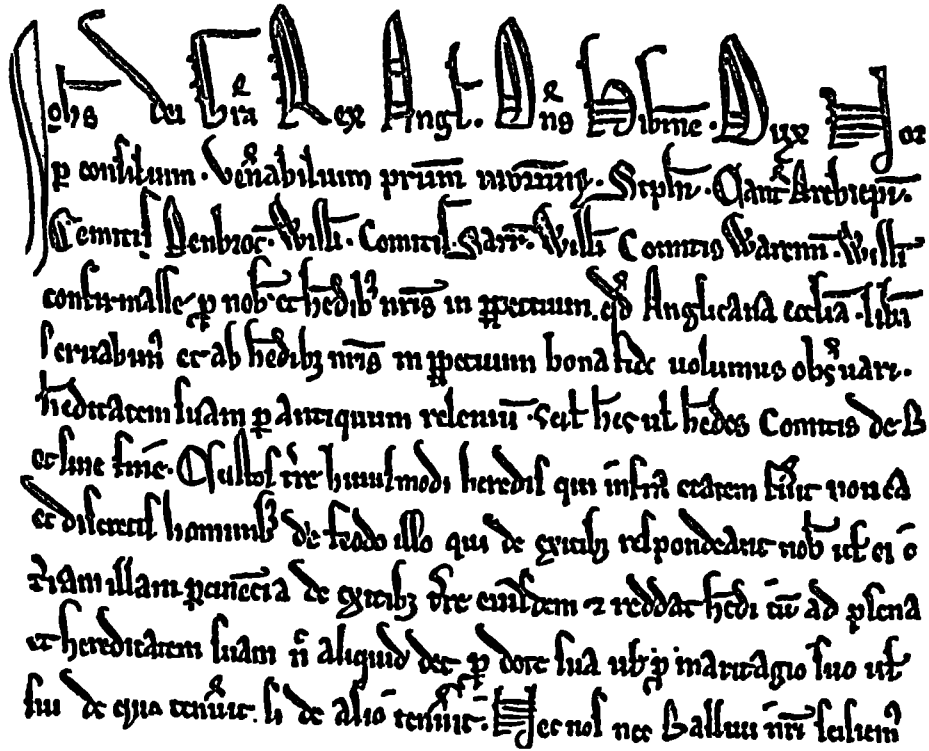 Johs dei gra Rex Angl. Dns Hibnie. Dux Nor
p consilium. Venabilium prum nrorum. Stephi. Cant Archiepi.
Comitis Penbroc. Willi. Comitis. Sarr. Willi Comitis Warenn. Willi
confirmasse p nob et hedib nris in ppetuum. qd Anglicana ecclia. liba
servabim et ab hedibz nris in ppetuum bona fide volumus obsvari.
heditatem suam p antiquum releviu. scil hes vl hedes Comitis de B
et sine fine. Custos tre huiusmodi heredis qui infra etatem fuit non ca
et discretis hominib de feodo illo qui de exitibz respondeant nob vl ei
tram illam ptinecia de exitibz tre eiusdem ⁊ reddat hedi cu ad plena
et hereditatem suam n aliquid det p dote sua vl p maritagio suo vl
sui de quo tenuit. si de alio tenuit. Nec nos nec Ballivi nri seisiem